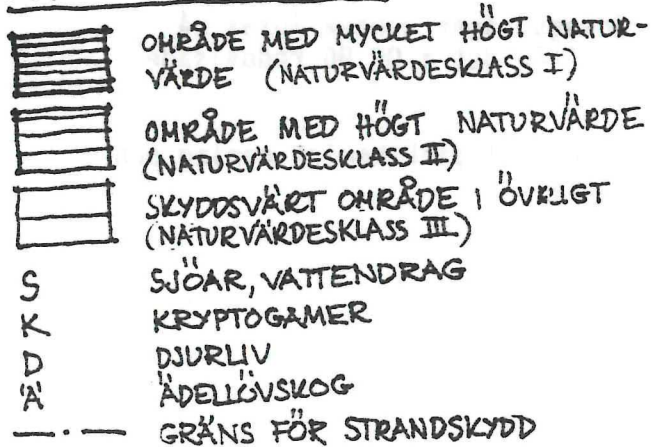 OMRÅDE MED MYCKET HÖGT NATUR-
VÄRDE (NATURVÄRDESKLASS I)
OMRÅDE MED HÖGT NATURVÄRDE
(NATURVÄRDESKLASS II)
SKYDDSVÄRT OMRÅDE I ÖVRIGT
(NATURVÄRDESKLASS III)
S SJÖAR, VATTENDRAG
K KRYPTOGAMER
D DJURLIV
Ä ÄDELLÖVSKOG
GRÄNS FÖR STRANDSKYDD